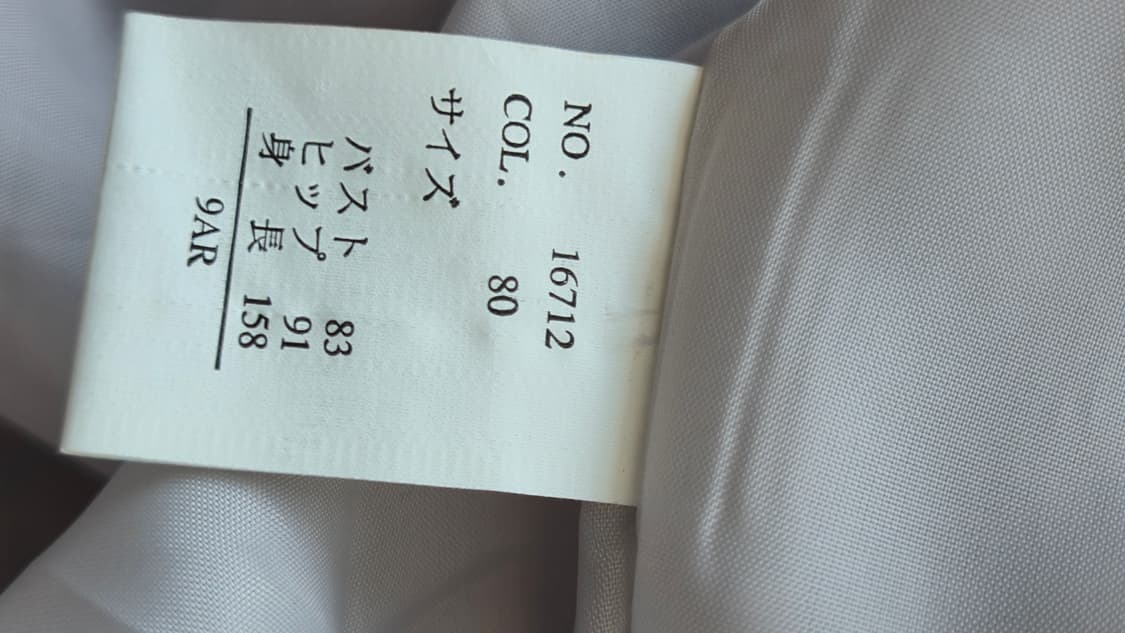 NO. 16712
COL. 80
サイズ
バスト 83
ヒップ 91
身長 158
9AR